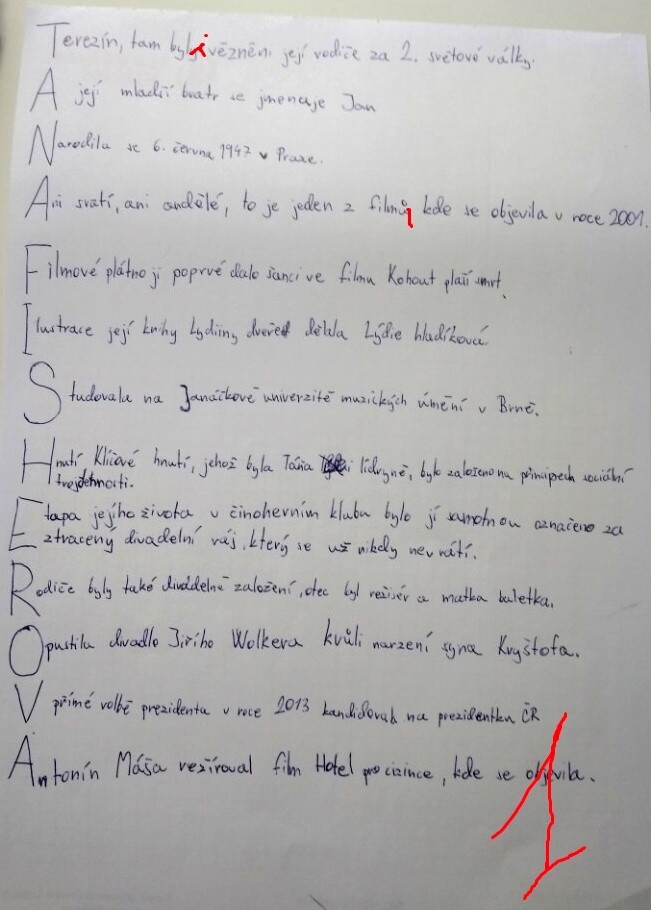 Terezín, tam byli vězněni její rodiče za 2. světové války.
A její mladší bratr se jmenuje Jan
Narodila se 6. června 1947 v Praze.
Ani svatí, ani andělé, to je jeden z filmů, kde se objevila v roce 2001.
Filmové plátno jí poprvé dalo šanci ve filmu Kohout plaší smrt.
Ilustrace její knihy Lydiiny dveře dělala Lýdie hladíková.
Studovala na Janáčkově univerzitě muzických umění v Brně.
Hnutí Klíčové hnutí, jehož byla Táňa lídryně, bylo založeno na principech sociální
trojčlennosti.
Etapa jejího života v činoherním klubu bylo jí samotnou označeno za
ztracený divadelní ráj, který se už nikdy nevrátí.
Rodiče byly také divadelně založení, otec byl režisér a matka baletka.
Opustila divadlo Jiřího Wolkera kvůli narzení syna Kryštofa.
V přímé volbě prezidenta v roce 2013 kandidovala na prezidentku ČR
Antonín Máša režíroval film Hotel pro cizince, kde se objevila.
1